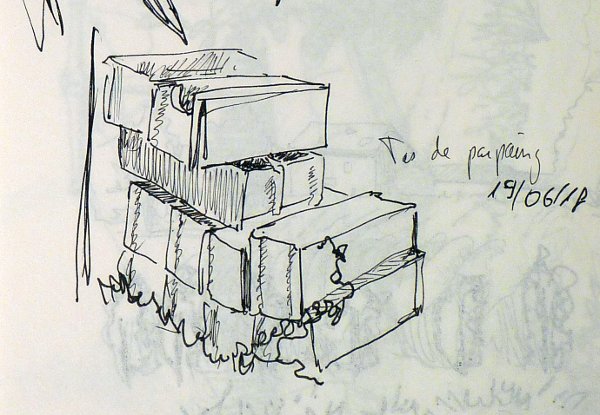 Tas de parpaing
19/06/18